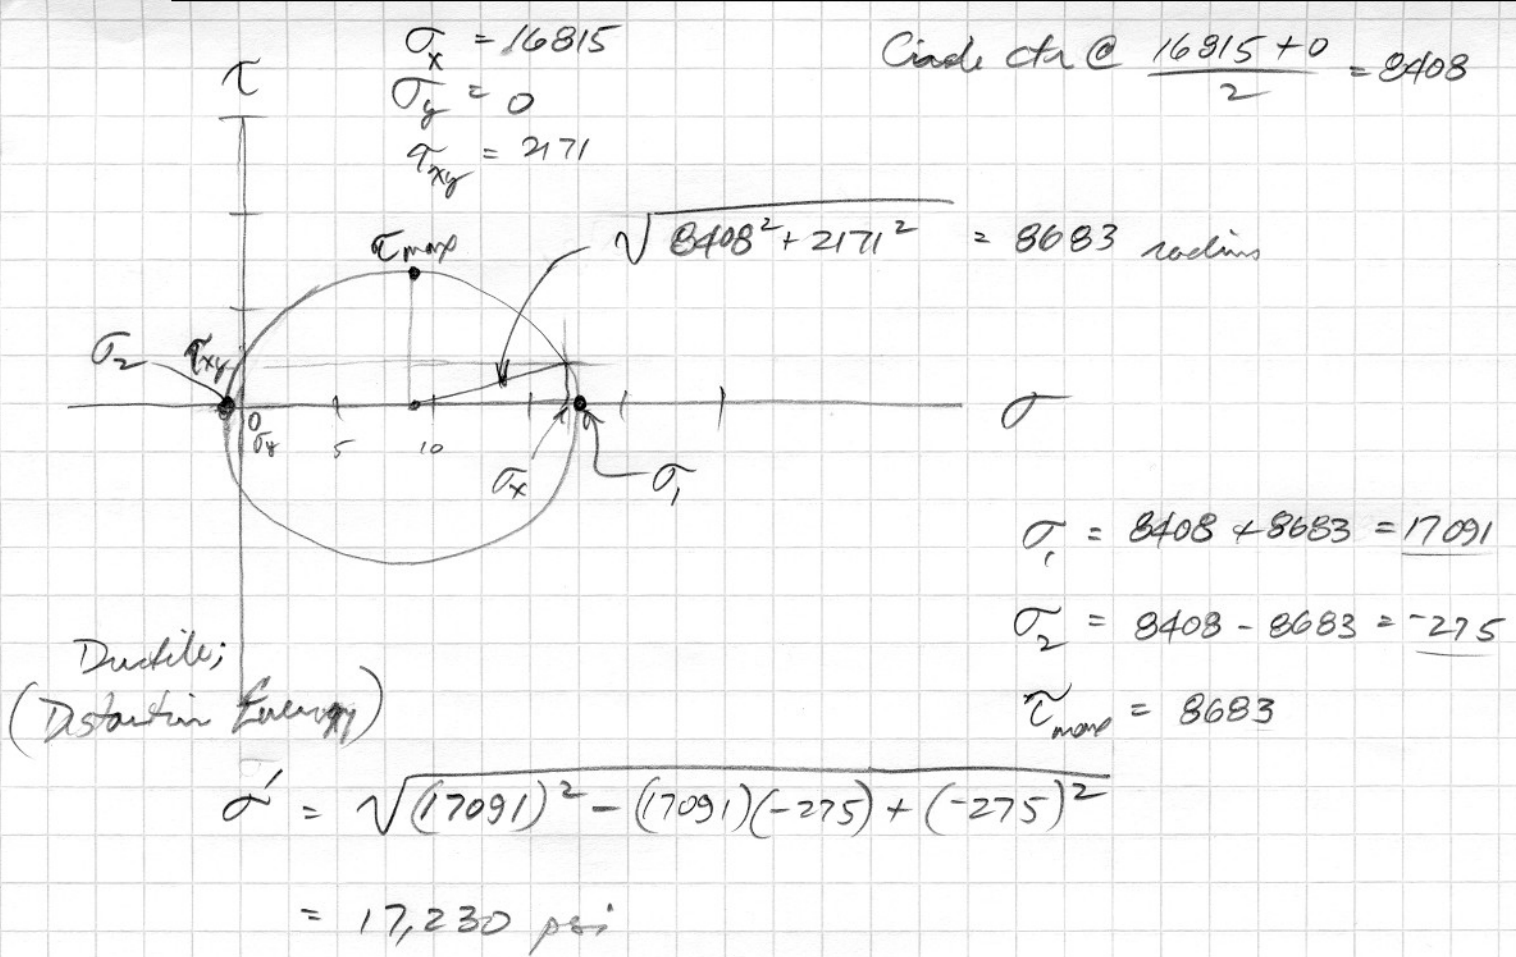 σx = 16815
σy = 0
τxy = 2171
Circle ctr @ (16815 + 0) / 2 = 8408
τ
τmax
√(8408² + 2171²) = 8683 radius
σ2
τxy
0
σy
5
10
σx
σ1
σ
σ1 = 8408 + 8683 = 17091
σ2 = 8408 - 8683 = -275
τmax = 8683
Ductile;
(Distortion Energy)
σ' = √((17091)² - (17091)(-275) + (-275)²)
= 17,230 psi